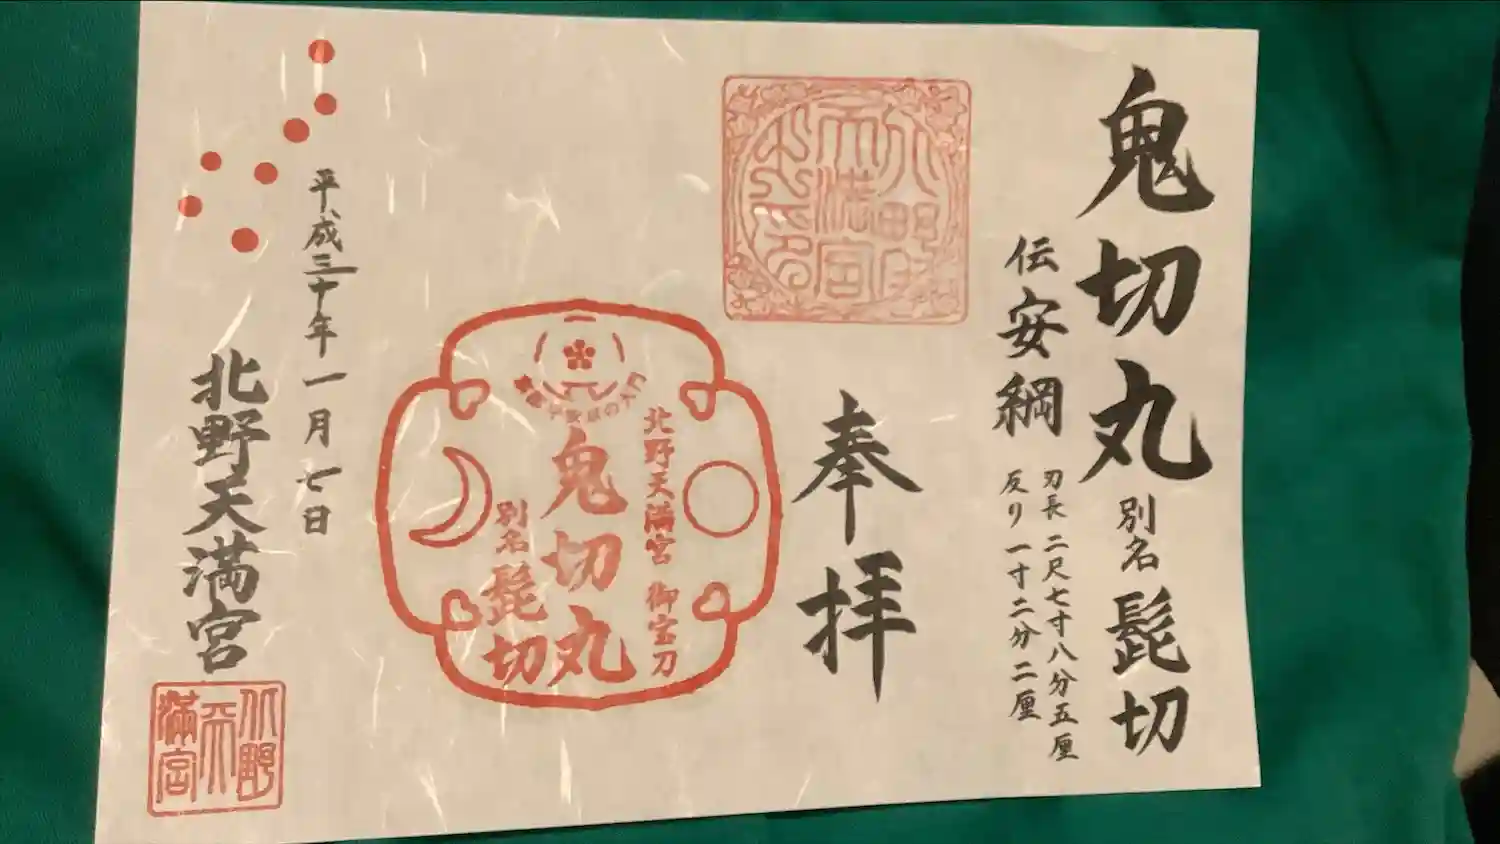 鬼切丸 別名 髭切
伝安綱
刃長 二尺七寸八分五厘
反り 一寸二分二厘
奉拝
北野天満宮 御宝刀
鬼切丸
別名 髭切
平成三十年一月七日
北野天満宮
北野
天
満宮